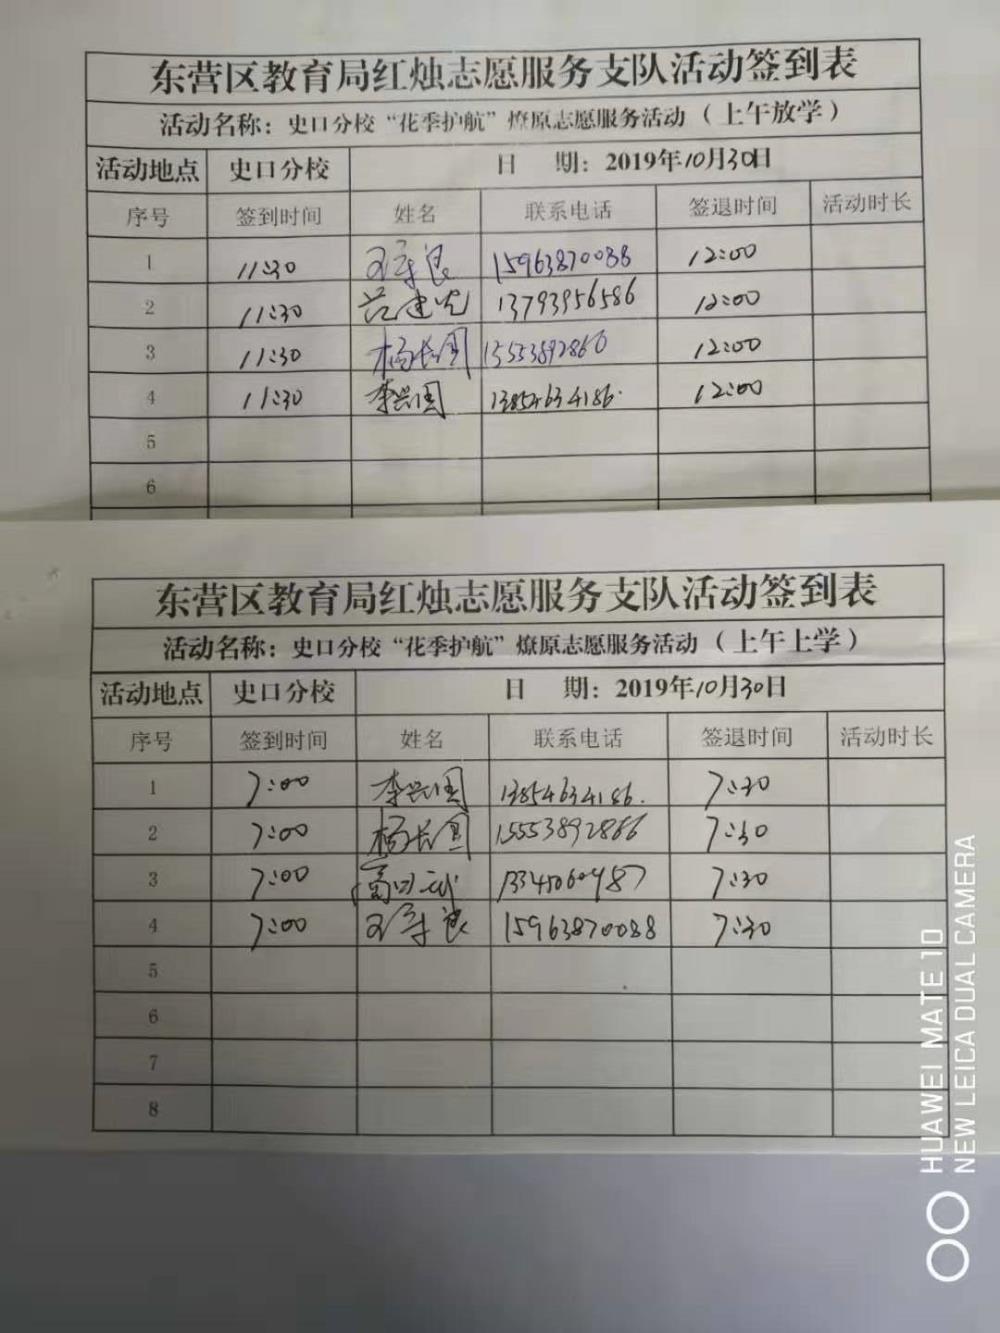 东营区教育局红烛志愿服务支队活动签到表
活动名称：史口分校“花季护航”燎原志愿服务活动（上午放学）
活动地点 史口分校 日 期：2019年10月30日
序号 签到时间 姓名 联系电话 签退时间 活动时长
1 11:30 王守良 15963870088 12:00
2 11:30 13793956586 12:00
3 11:30 杨长国 15553892866 12:00
4 11:30 李兴国 13854634186. 12:00
5
6
东营区教育局红烛志愿服务支队活动签到表
活动名称：史口分校“花季护航”燎原志愿服务活动（上午上学）
活动地点 史口分校 日 期：2019年10月30日
序号 签到时间 姓名 联系电话 签退时间 活动时长
1 7:00 李兴国 13854634186. 7:30
2 7:00 杨长国 15553892866 7:30
3 7:00 7:30
4 7:00 王守良 15963870088 7:30
5
6
7
8
HUAWEI MATE 10
NEW LEICA DUAL CAMERA